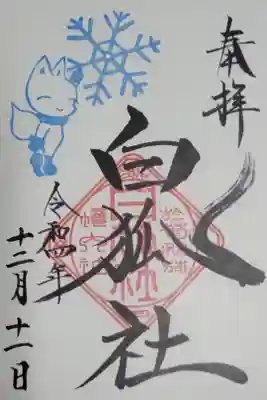 奉拝
白狐社
令和四年
十二月十一日